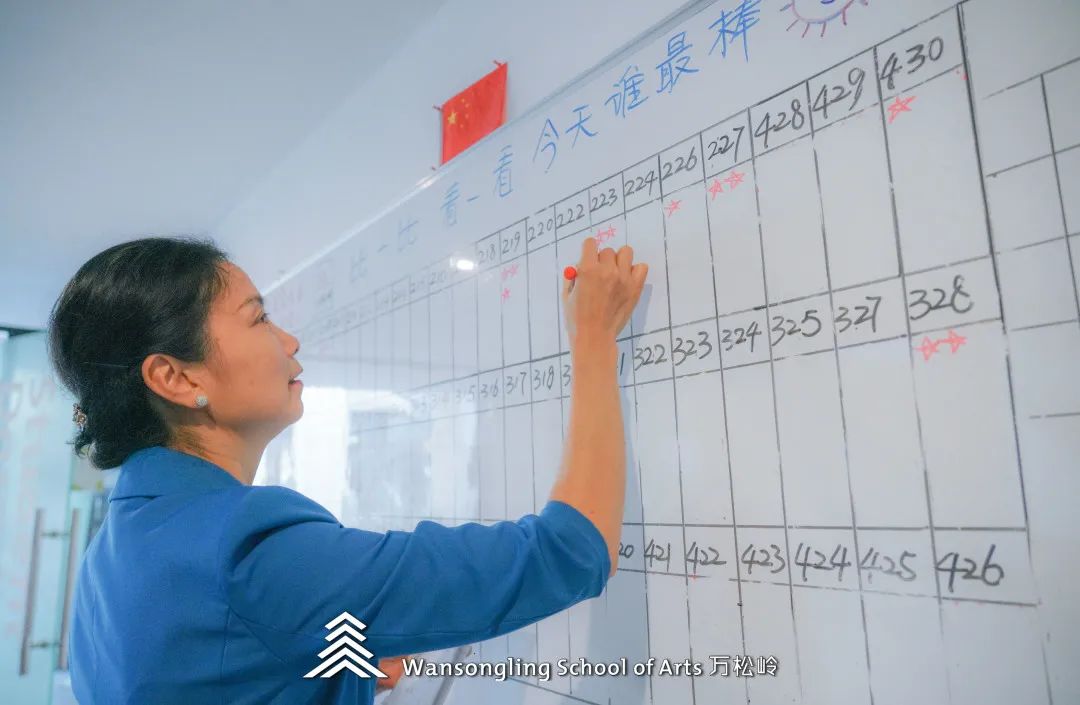 比一比 看一看 今天谁最棒
218 219 220 222 223 224 226 227 428 429 430
315 316 317 318 322 323 324 325 327 328
421 422 423 424 425 426
Wansongling School of Arts 万松岭